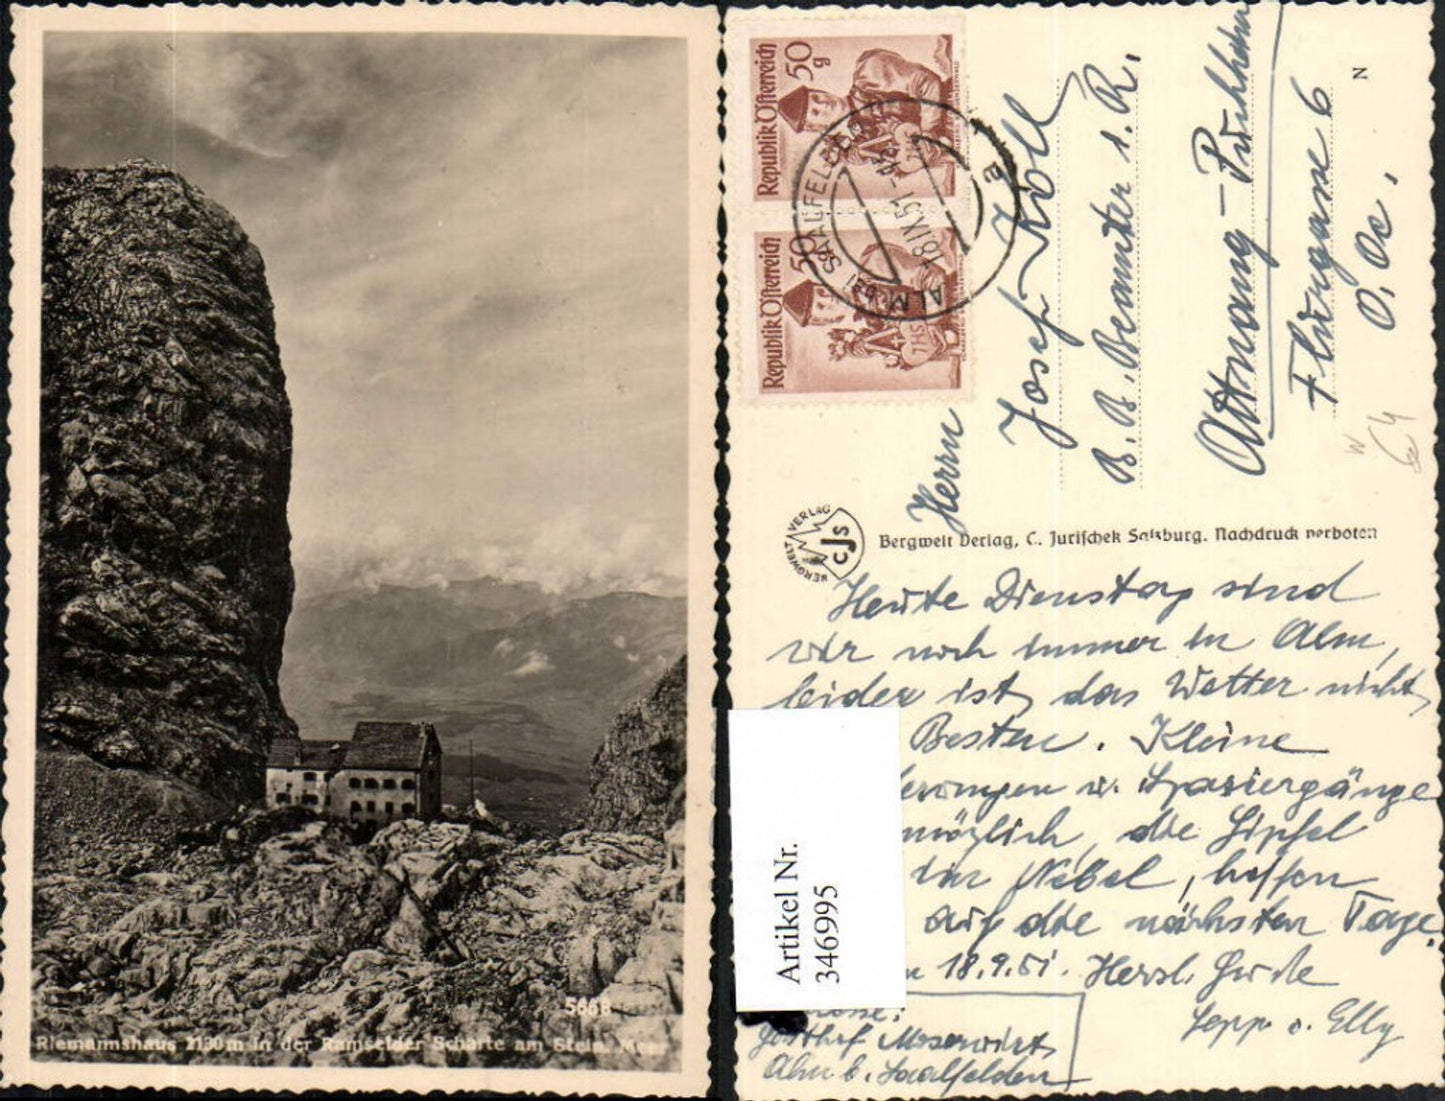 5668
Riemannshaus 2130m in der Ramseider Scharte am Stein. Meer
Republik Österreich
50
g
Republik Österreich
50
ALM bei SAALFELDEN
18.IX.51
a
Herrn
Josef Koll
B. B. Beamter i. R.
Attnang-Puchheim
Flurgasse 6
O. Oe.
N
BERGWELT VERLAG
CJS
Bergwelt Verlag, C. Jurischek Salzburg. Nachdruck verboten
Heute Dienstag sind
wir noch immer in Alm,
leider ist das Wetter nicht
Besten. Kleine
u. Spaziergänge
möglich, die Gipfel
im Nebel, hoffen
auf die nächsten Tage.
18.9.51. Herzl. Grüße
Sepp u. Elly
Gasthof Moserwirt
Alm b. Saalfelden
Artikel Nr.
346995